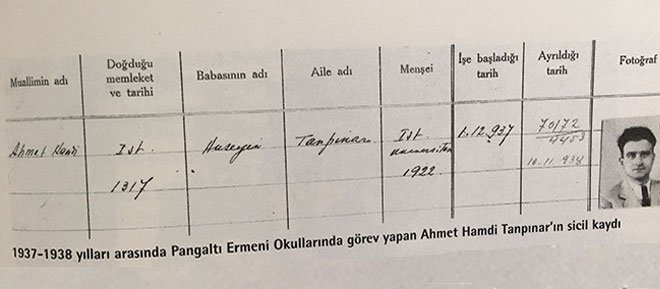 Muallimin adı
Doğduğu
memleket
ve tarihi
Babasının adı
Aile adı
Menşei
İşe başladığı
tarih
Ayrıldığı
tarih
Fotoğraf
Ahmet Hamdi
İst.
1317
Huseyin
Tanpınar
İst.
Üniversitesi
1922
1.12.937
70172
10.11.938
1937-1938 yılları arasında Pangaltı Ermeni Okullarında görev yapan Ahmet Hamdi Tanpınar'ın sicil kaydı